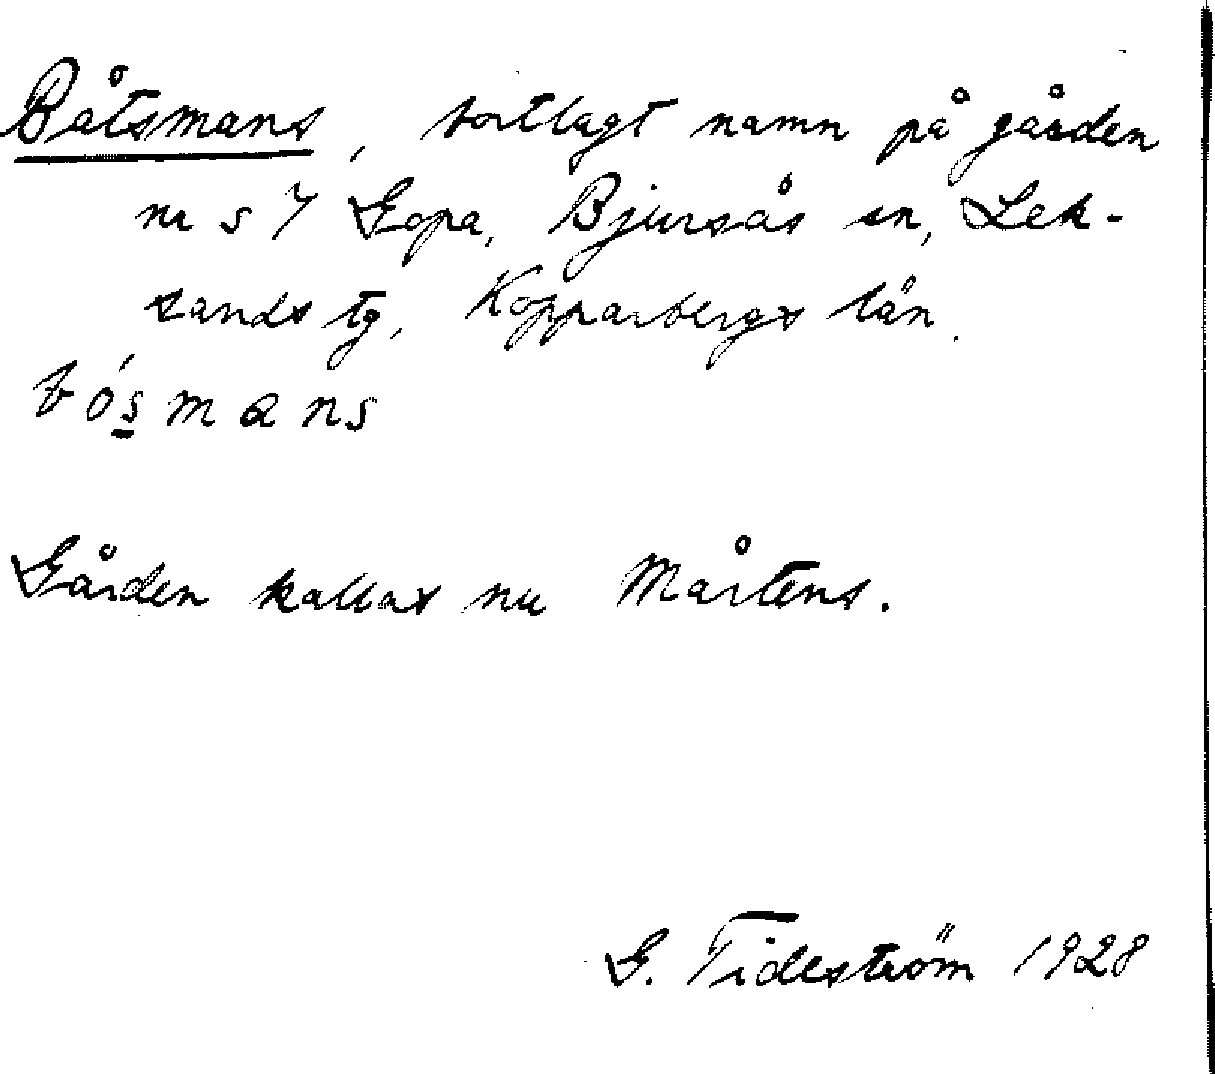 Båtsmans, bortlagt namn på gården
nr s 7 Gopa, Bjursås sn, Lek-
sands tg, Kopparbergs län.
bósmans
Gården kallas nu Mårtens.
G. Tideström 1928